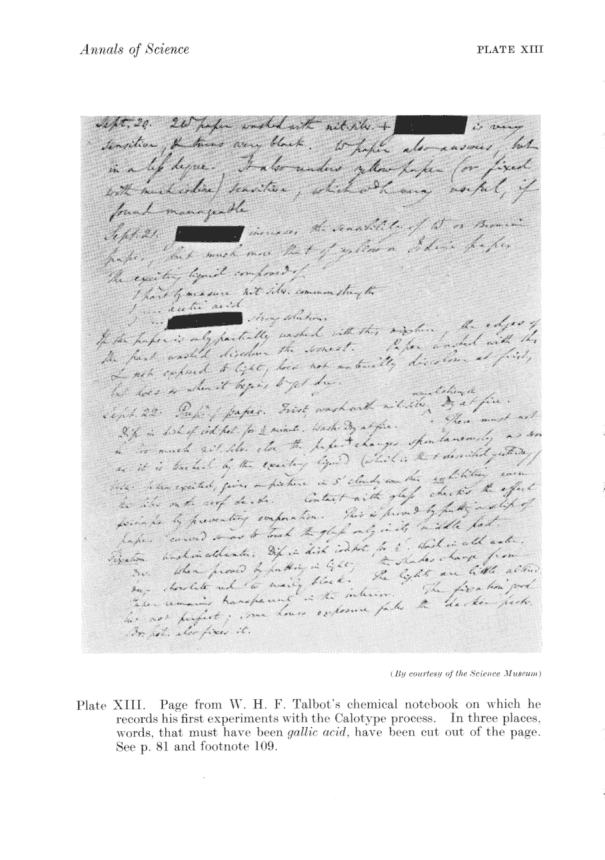 Annals of Science
PLATE XIII
Sept. 20. W paper washed with nit. silv. + is very
sensitive, & turns very black. W paper also answers, but
in a less degree. It also renders yellow paper (or fixed
with much iodine) sensitive, which may useful, if
found manageable
Sept. 21. increases the sensibility of W or Bromine
paper, but much more that of yellow or Iodine paper
The exciting liquid composed of
1 part by measure nit silv. common strength
1 acetic acid
strong solution
If the paper is only partially washed with this mixture, the edges of
the part washed discolour the soonest. Paper washed with this
& not exposed to light, does not materially discolour at first,
but does so when it begins to get dry.
Sept. 22. of paper. First wash with nit. silv. Dry at fire.
Dip in dish of iod pot for ½ minute. Wash. Dry at fire. There must not
be too much nit. silv. else the paper changes spontaneously as soon
as it is touched by the exciting liquid (which is that described yesterday)
paper when excited, gives a picture in 5' cloudy weather, exhibiting even
the tiles on the roof &c &c. Contact with glass checks the effect
by preventing evaporation. This is proved by putting a slip of
paper curved so as to touch the glass only in its middle part
Fixation. wash in cold water. Dip in dish iod pot. for ½'. Wash in cold water.
Dry. When proved by putting in light, the shades change from
chocolate red to black. The lights are little altered
Paper remains transparent in the interior. The fixation, good
but not perfect; some hours exposure the parts.
Br. pot. also fixes it.
(By courtesy of the Science Museum)
Plate XIII. Page from W. H. F. Talbot's chemical notebook on which he
records his first experiments with the Calotype process. In three places,
words, that must have been gallic acid, have been cut out of the page.
See p. 81 and footnote 109.